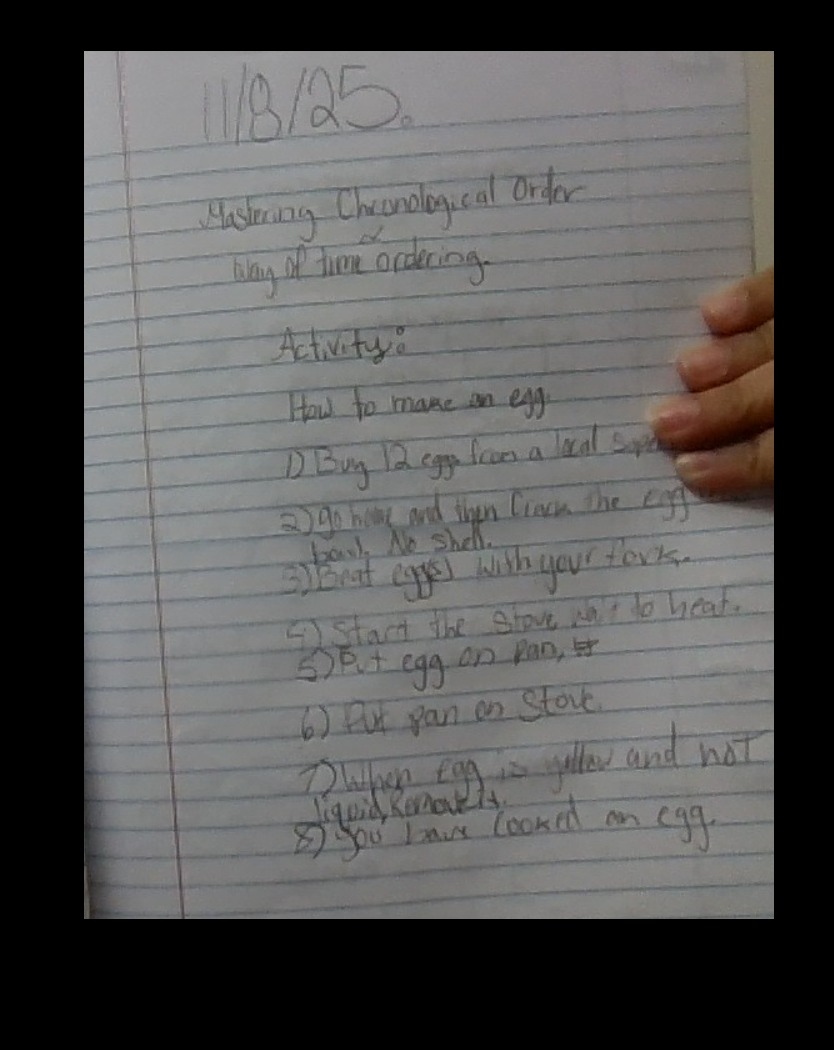 11/8/25.
Mastering Chronological Order
Way of time ordering.
Activity:
How to make an egg.
1) Buy 12 eggs from a local
2) go home and then Crack the egg
bowl. No shell.
3) Beat egg(s) with your fork.
4) Start the stove wait to heat.
5) Put egg on pan,
6) Put pan on Stove.
7) When egg is yellow and not
liquid, Remove it.
8) You have Cooked an egg.